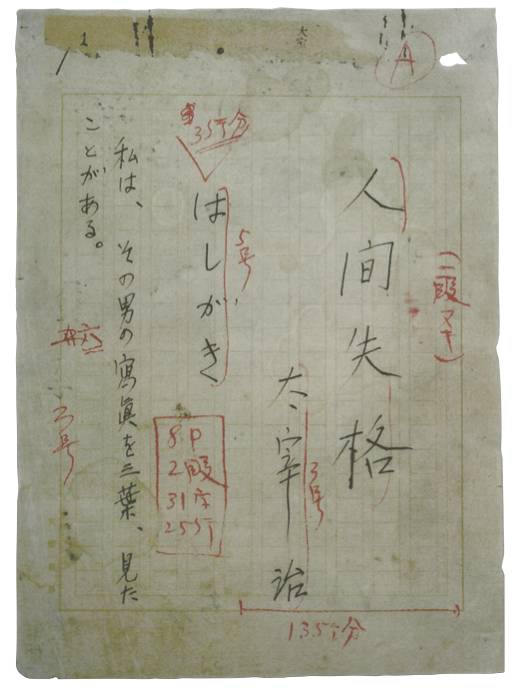 A
(二段ヌキ)
人間失格
3号
太宰治
135行分
5号
35行分
はしがき
8P
2段
31字
25行
私は、その男の寫眞を三葉、見た
ことがある。
3号